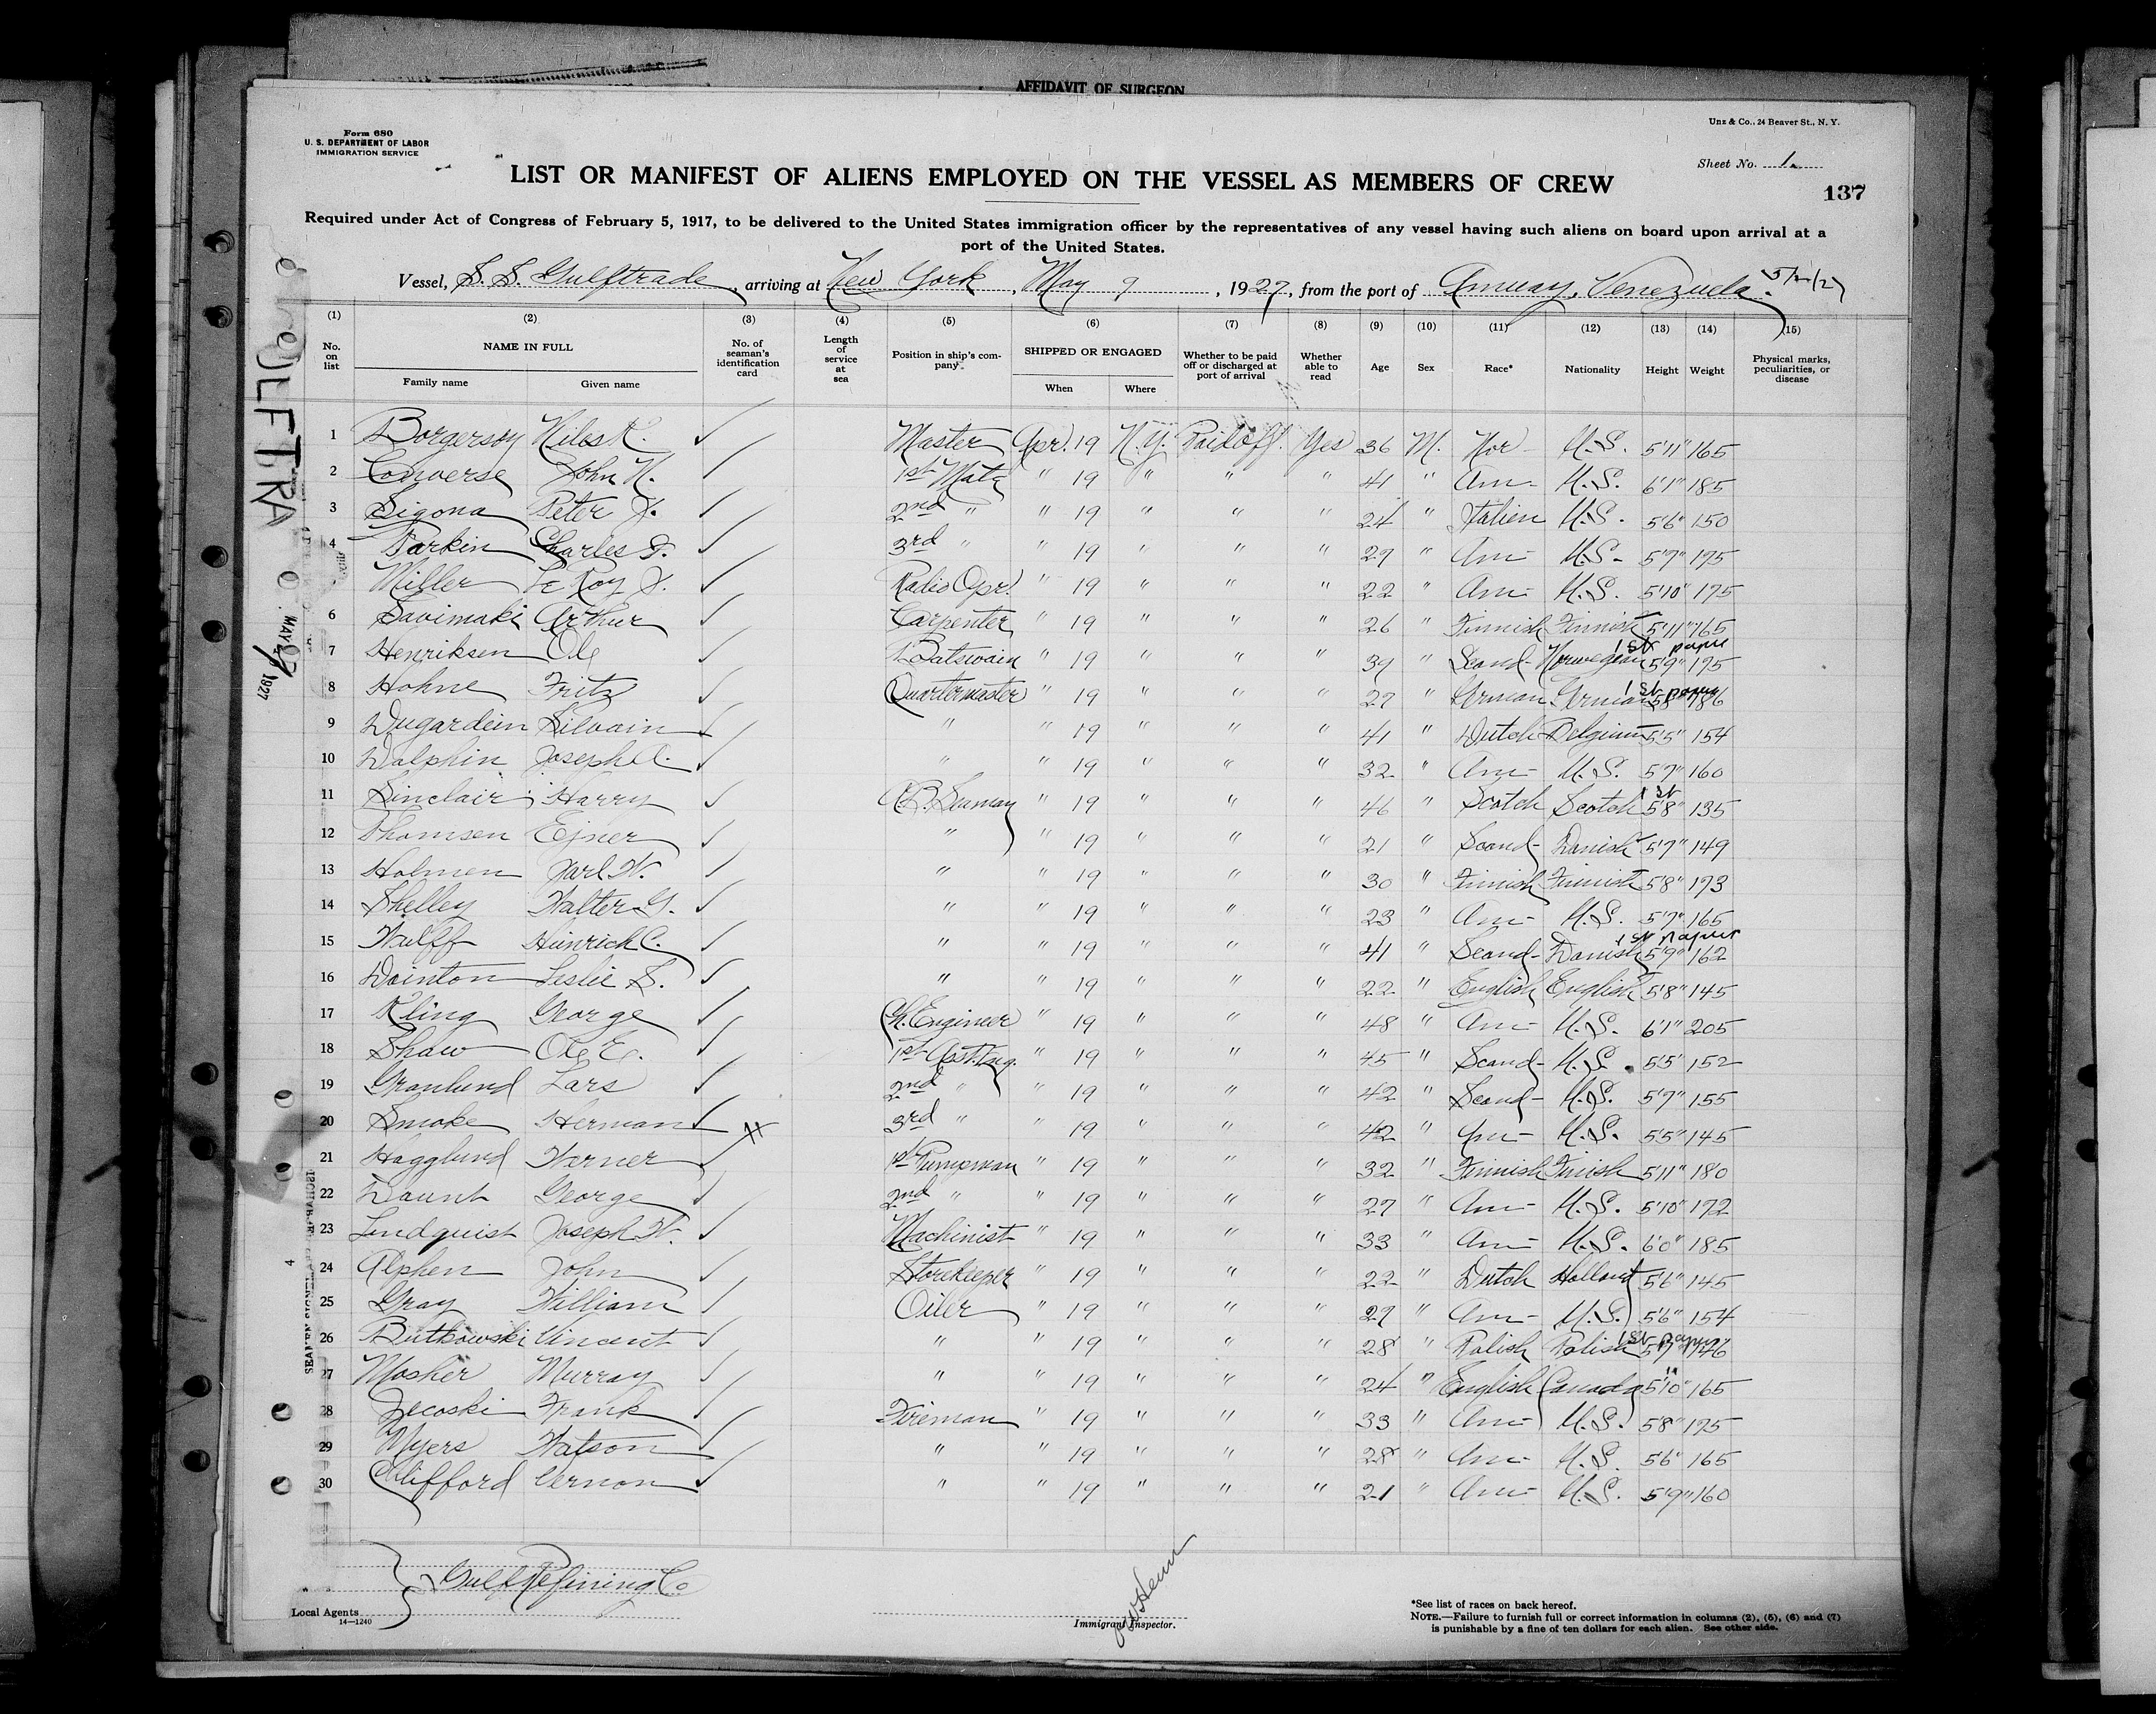 AFFIDAVIT OF SURGEON
Form 680
U. S. DEPARTMENT OF LABOR
IMMIGRATION SERVICE
Unz & Co., 24 Beaver St., N. Y.
Sheet No. 1.
LIST OR MANIFEST OF ALIENS EMPLOYED ON THE VESSEL AS MEMBERS OF CREW
137
Required under Act of Congress of February 5, 1917, to be delivered to the United States immigration officer by the representatives of any vessel having such aliens on board upon arrival at a
port of the United States.
Vessel, S. S. Gulftrade, arriving at New York, May 9, 1927, from the port of Amuay, Venezuela.
(1) (2) (3) (4) (5) (6) (7) (8) (9) (10) (11) (12) (13) (14) (15)
No. on list NAME IN FULL Family name Given name No. of seaman's identification card Length of service at sea Position in ship's company SHIPPED OR ENGAGED When Where Whether to be paid off or discharged at port of arrival Whether able to read Age Sex Race* Nationality Height Weight Physical marks, peculiarities, or disease
1 Borgerson Nils R. Master Apr. 19 N.Y. Paid off. Yes 36 M. Nor U.S. 5'11" 165
2 Converse John N. 1st Mate " 19 " " " 41 " Am- U.S. 6'1" 185
3 Sigona Peter J. 2nd " " 19 " " " 24 " Italien U.S. 5'6" 150
4 Parkin Charles " 3rd " " 19 " " " 27 " Am- U.S. 5'7" 175
Miller Le Roy J. Radio Opr. " 19 " " " 22 " Am- U.S. 5'10" 175
6 Savimaki Arthur Carpenter " 19 " " " 26 " Finnish Finnish 5'11" 165
7 Henriksen Ole Botswain " 19 " " " 39 " Scand- Norwegian 1st paper 5'9" 175
8 Hohne Fritz Quartermaster " 19 " " " 27 " German German 1st paper 5'8" 186
9 Dugardein Silvain " " 19 " " " 41 " Dutch Belgium 5'5" 154
10 Dolphin Joseph C. " " 19 " " " 32 " Am- U.S. 5'7" 160
11 Sinclair Harry A.B. Seaman " 19 " " " 46 " Scotch Scotch 1st 5'8" 135
12 Thomsen Ejner " " 19 " " " 21 " Scand- Danish 5'7" 149
13 Holmen Jarl W. " " 19 " " " 30 " Finnish Finnish 5'8" 173
14 Shelley Walter G. " " 19 " " " 23 " Am- U.S. 5'7" 165
15 Wulff Hinrich C. " " 19 " " " 41 " Scand- Danish 1st paper 5'9" 162
16 Dainton Leslie S. " " 19 " " " 22 " English English 5'8" 145
17 Kling George Ch. Engineer " 19 " " " 48 " Am- U.S. 6'1" 205
18 Shaw Ole E. 1st Asst. Eng. " 19 " " " 45 " Scand- U.S. 5'5" 152
19 Granlund Lars 2nd " " 19 " " " 42 " Scand- U.S. 5'7" 155
20 Smoke Herman 3rd " " 19 " " " 42 " Am- U.S. 5'5" 145
21 Hagglund Werner 1st Pumpman " 19 " " " 32 " Finnish Finish 5'11" 180
22 Daunt George 2nd " " 19 " " " 27 " Am- U.S. 5'10" 172
23 Lindquist Joseph W. Machinist " 19 " " " 33 " Am- U.S. 6'0" 185
24 Alphen John Storekeeper " 19 " " " 22 " Dutch Holland 5'6" 145
25 Gray William Oiler " 19 " " " 27 " Am- U.S. 5'6" 154
26 Butkowski Vincent " " 19 " " " 28 " Polish Polish 1st paper 5'7" 146
27 Mosher Murray " " 19 " " " 24 " English Canada 5'10" 165
28 Jecoski Frank Fireman " 19 " " " 33 " Am- U.S. 5'8" 175
29 Myers Watson " " 19 " " " 28 " Am- U.S. 5'6" 165
30 Clifford Vernon " " 19 " " " 21 " Am- U.S. 5'9" 160
Gulf Refining Co
Local Agents
14—1240
Immigrant Inspector.
*See list of races on back hereof.
NOTE.—Failure to furnish full or correct information in columns (2), (5), (6) and (7)
is punishable by a fine of ten dollars for each alien. See other side.